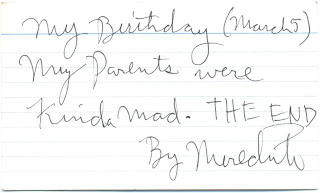 My Birthday (March 5)
My Parents were
Kinda Mad. THE END
By Meredith